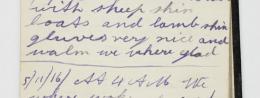 with sheep skin
coats and lamb skin
gluves very nice and
walm we where glad
5/11/16/ At 4 AM the